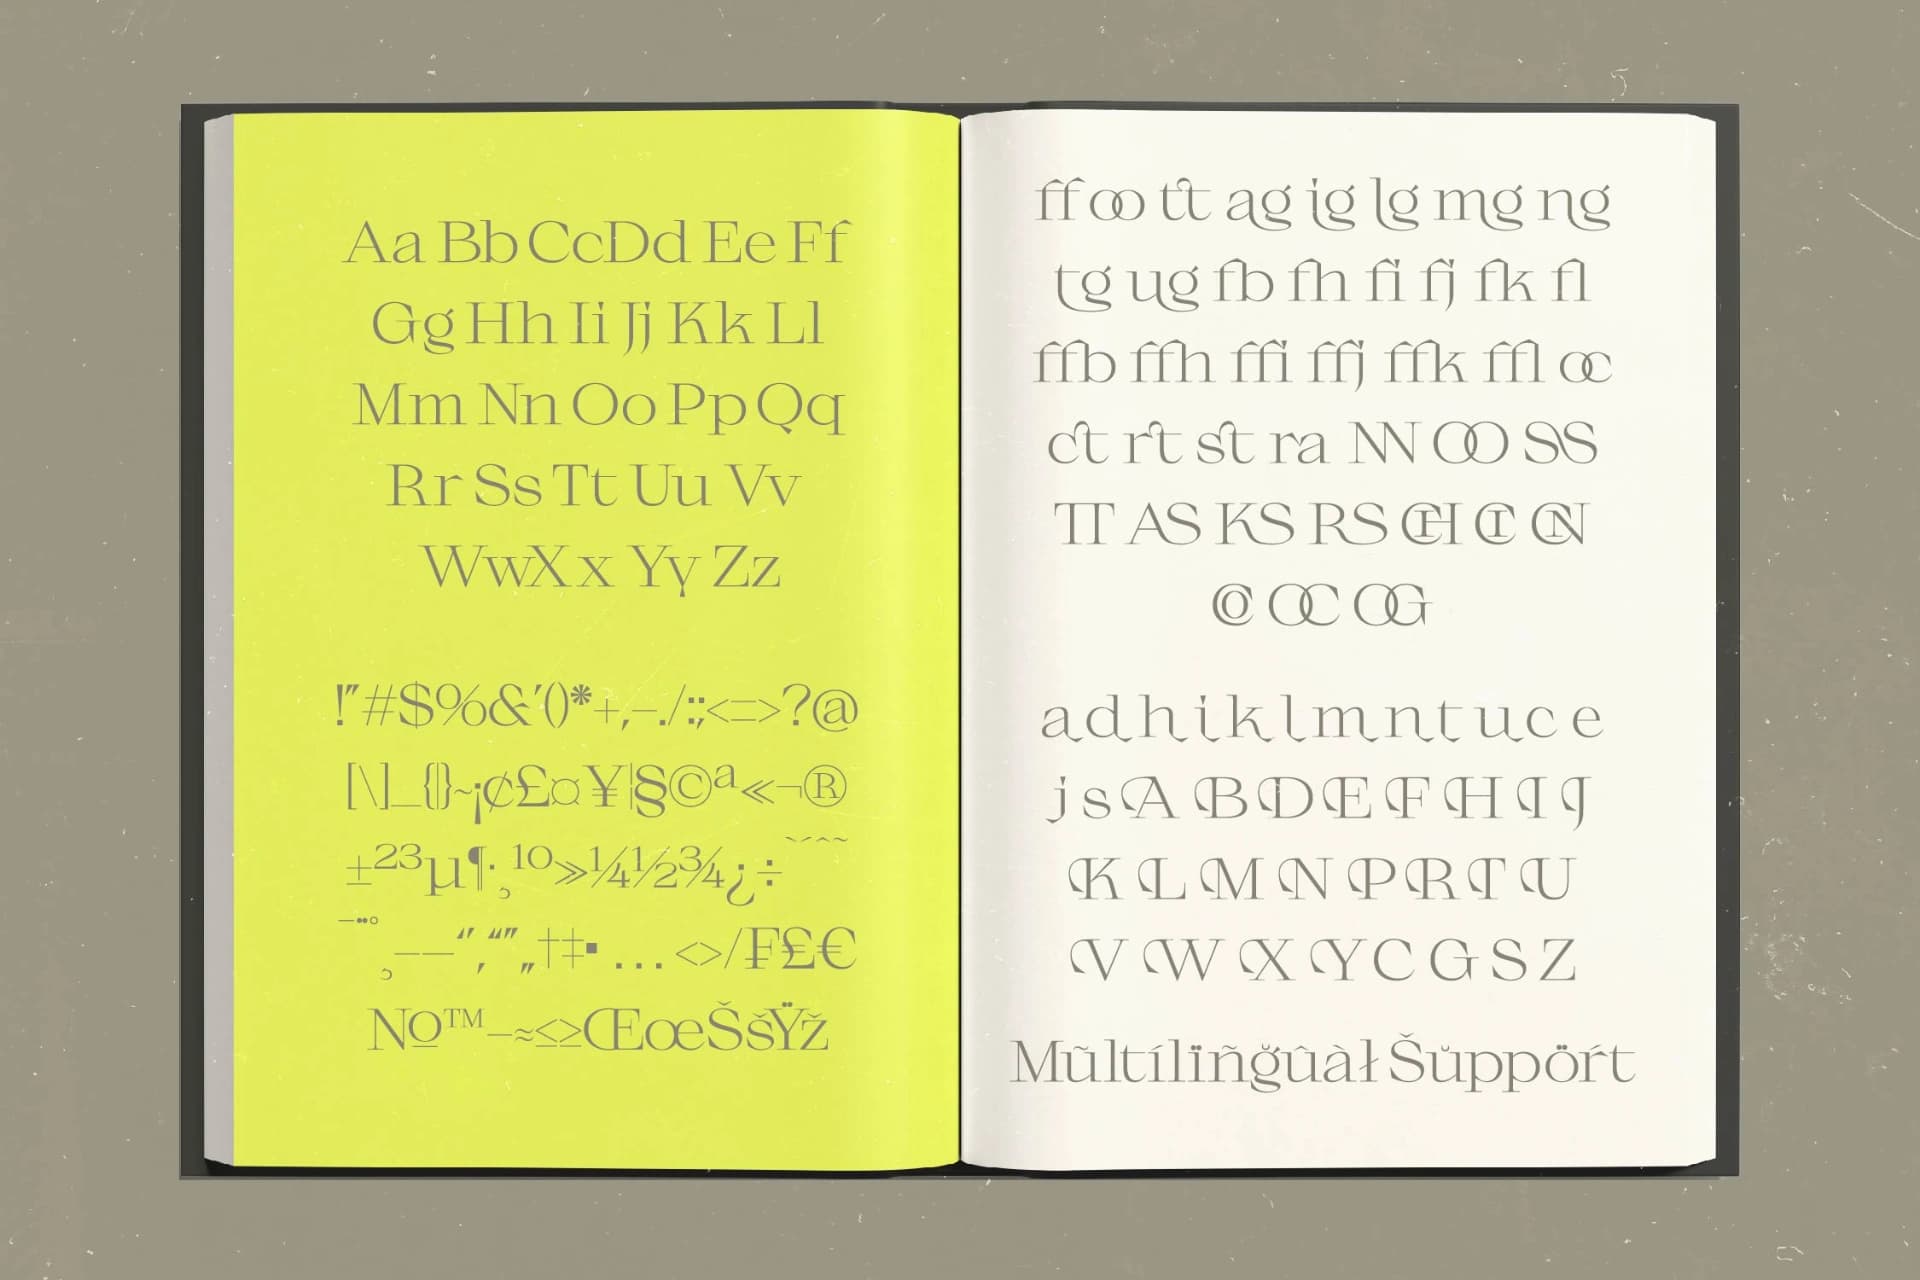 Aa Bb Cc Dd Ee Ff
Gg Hh Ii Jj Kk Ll
Mm Nn Oo Pp Qq
Rr Ss Tt Uu Vv
Ww Xx Yy Zz
!"#$%&'()*+,-./:;<=>?@
[\]_{|}~¡¢£¤¥¦§©ª«¬®
±²³µ¶·¸¹º»¼½¾¿÷`´ˆ˜
¯¨°¸–—‘’‚“”„†‡▪…<>/₣£€
№™−≈≤≥ŒœŠšŸž
ff oo tt ag ig lg mg ng
tg ug fb fh fi fj fk fl
ffb ffh ffi ffj ffk ffl oc
ct rt st ra NN OO SS
TT AS KS RS CH CI CN
CO OC OG
a d h i k l m n t u c e
j s A B D E F H I J
K L M N P R T U
V W X Y C G S Z
Mũltílïñğûàł Šŭppöŕt